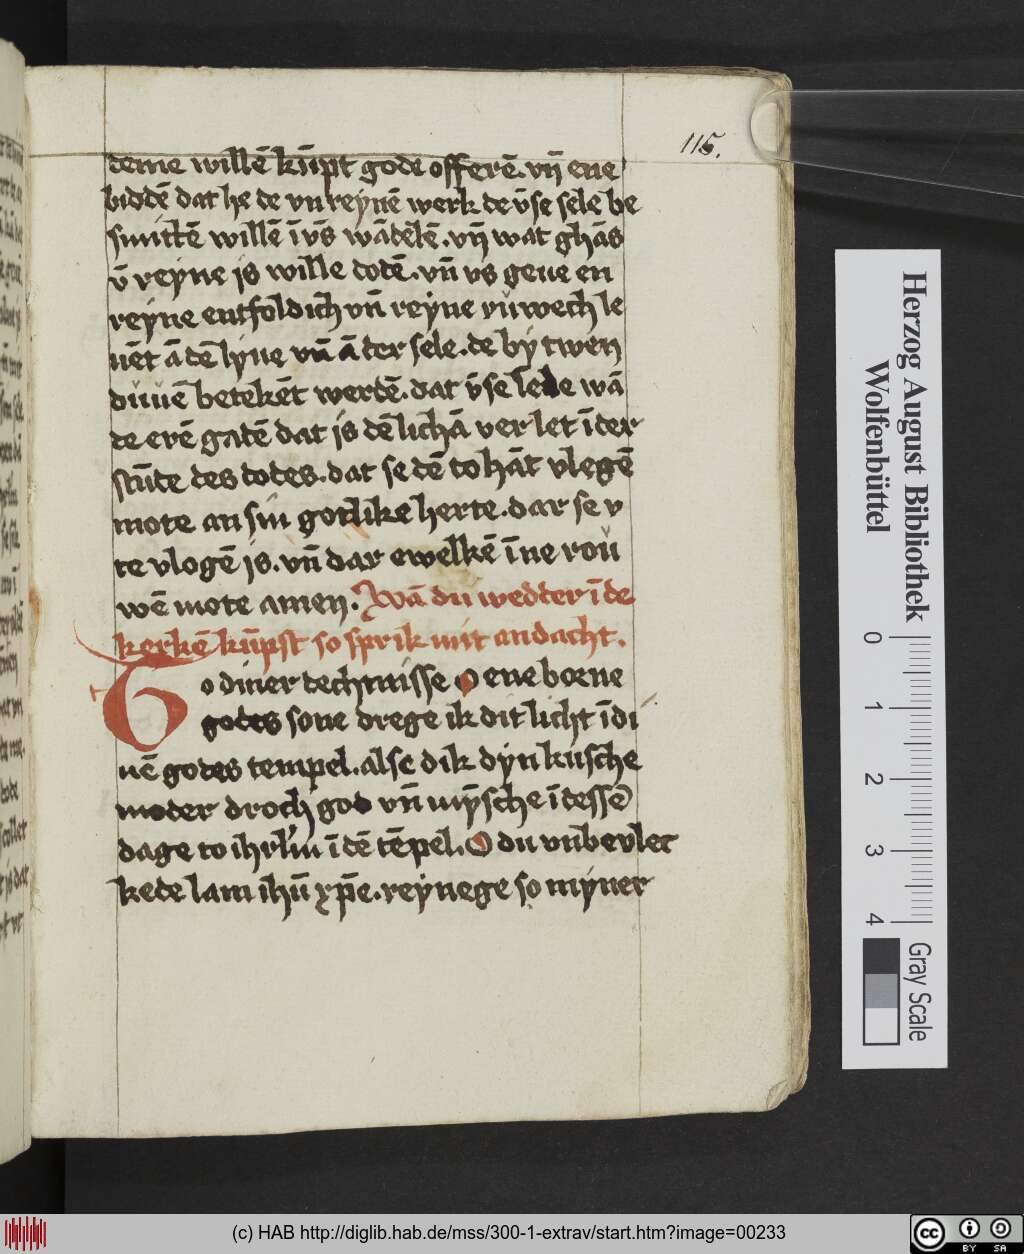 115.
deme willē kūpt gode offerē. vn̄ ene
biddē dat he de vn reynē werk de v̄se sele be
smittē willē ī vs̄ wādelē. vn̄ wat ghās
v̄ reyne is wille dodē. vn̄ vs geue en
reyne entfoldich vn̄ reyne vnwech le
uēt ā dē lyue vn̄ ā der sele. de by twen
duuē betekēt werdē. dat v̄se sele wā
de erē gadē dat is dē lichā verlet ī der
stūde des dodes. dat se dē to hāt vlegē
mote an sin gotlike herte. dar se v
te vlogē is. vn̄ dar ewelkē īne rou
wē mote amen. Wā du wedder ī de
kerkē kūpst so sprik mit andacht.
To diner dechtnisse o ene borne
godes sone drege ik dit licht ī di
nē godes tempel. alse dik dyn kusche
moder droch god vn̄ mȳsche ī dessē
dage to ihrlm ī dē tēpel. O du vnbevlec
kede lam ihū xp̄e. reynege so myner
Herzog August Bibliothek
Wolfenbüttel
0 1 2 3 4
Gray Scale
(c) HAB http://diglib.hab.de/mss/300-1-extrav/start.htm?image=00233
cc BY SA